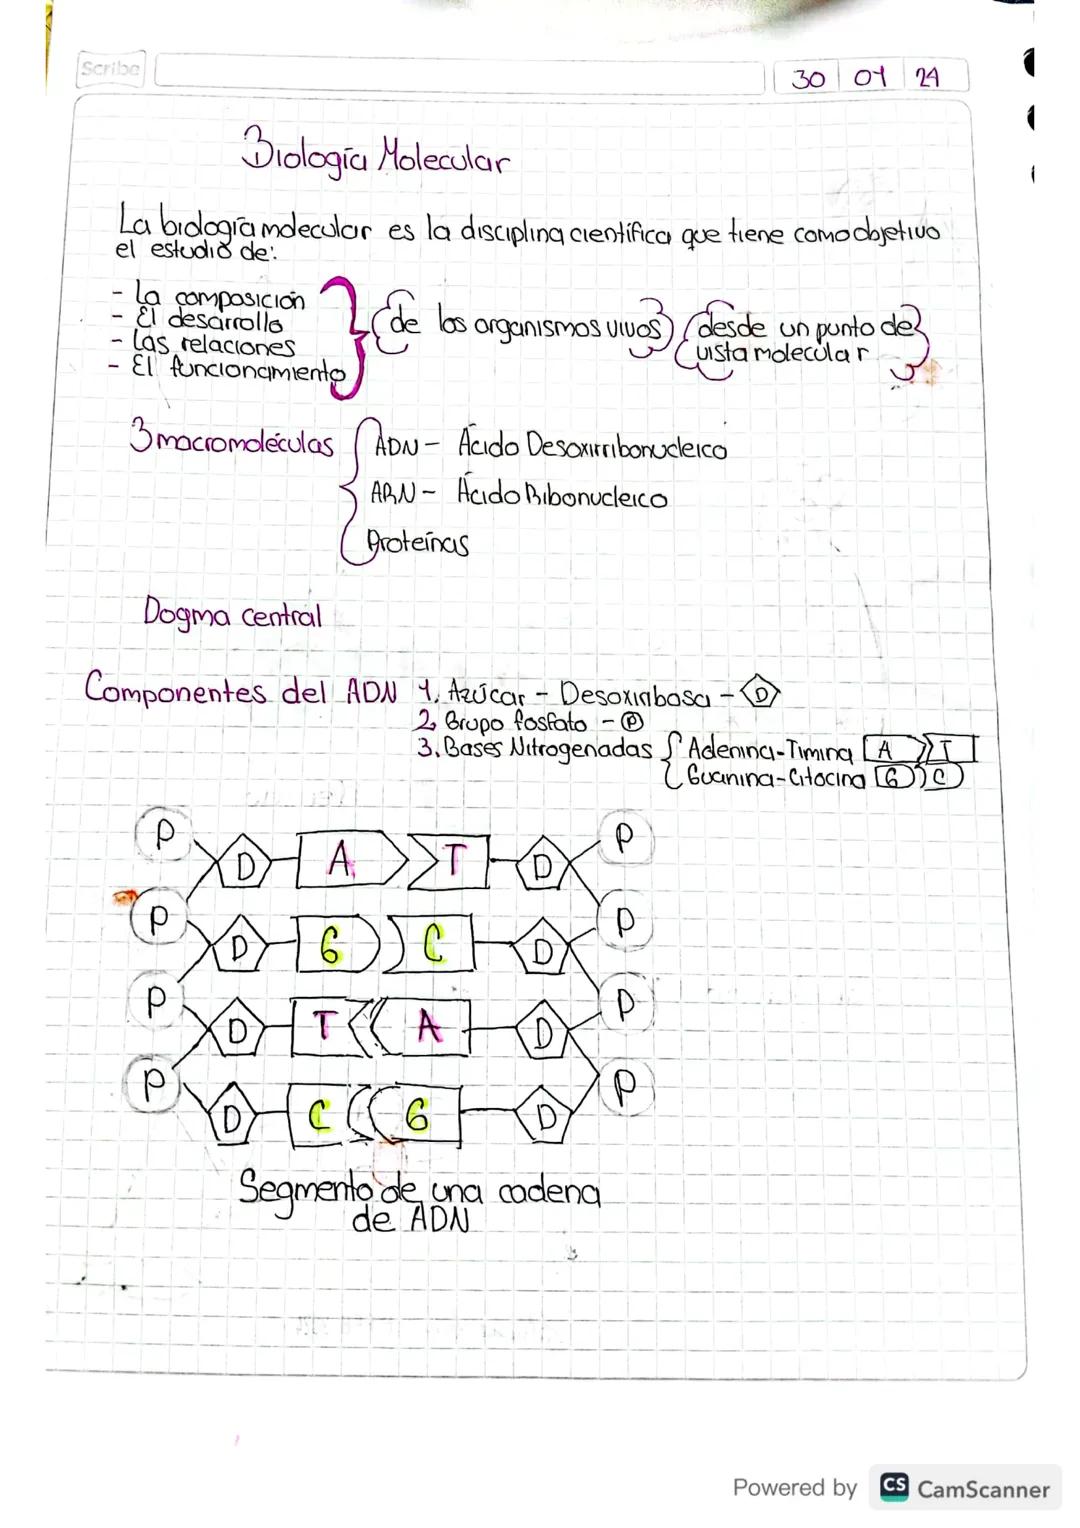 Scribe
30 01 24
Biología Molecular
La biología molecular es la disciplina científica que tiene como objetivo
el estudio de:
- La composición
- El desarrollo
- Las relaciones
- El funcionamiento
de los organismos vivos
desde un punto de
vista molecular
3 macromoléculas
ADN - Ácido Desoxirribonucleico
ARN - Ácido Ribonucleico
Proteínas
Dogma central
Componentes del ADN 1. Azúcar - Desoxirribosa - D
2. Grupo fosfato - P
3. Bases Nitrogenadas Adenina-Timina A T
Guanina-Citocina G C
P D A T D P
P D G C D P
P D T A D P
P D C G D P
Segmento de una cadena
de ADN
Powered by CS CamScanner